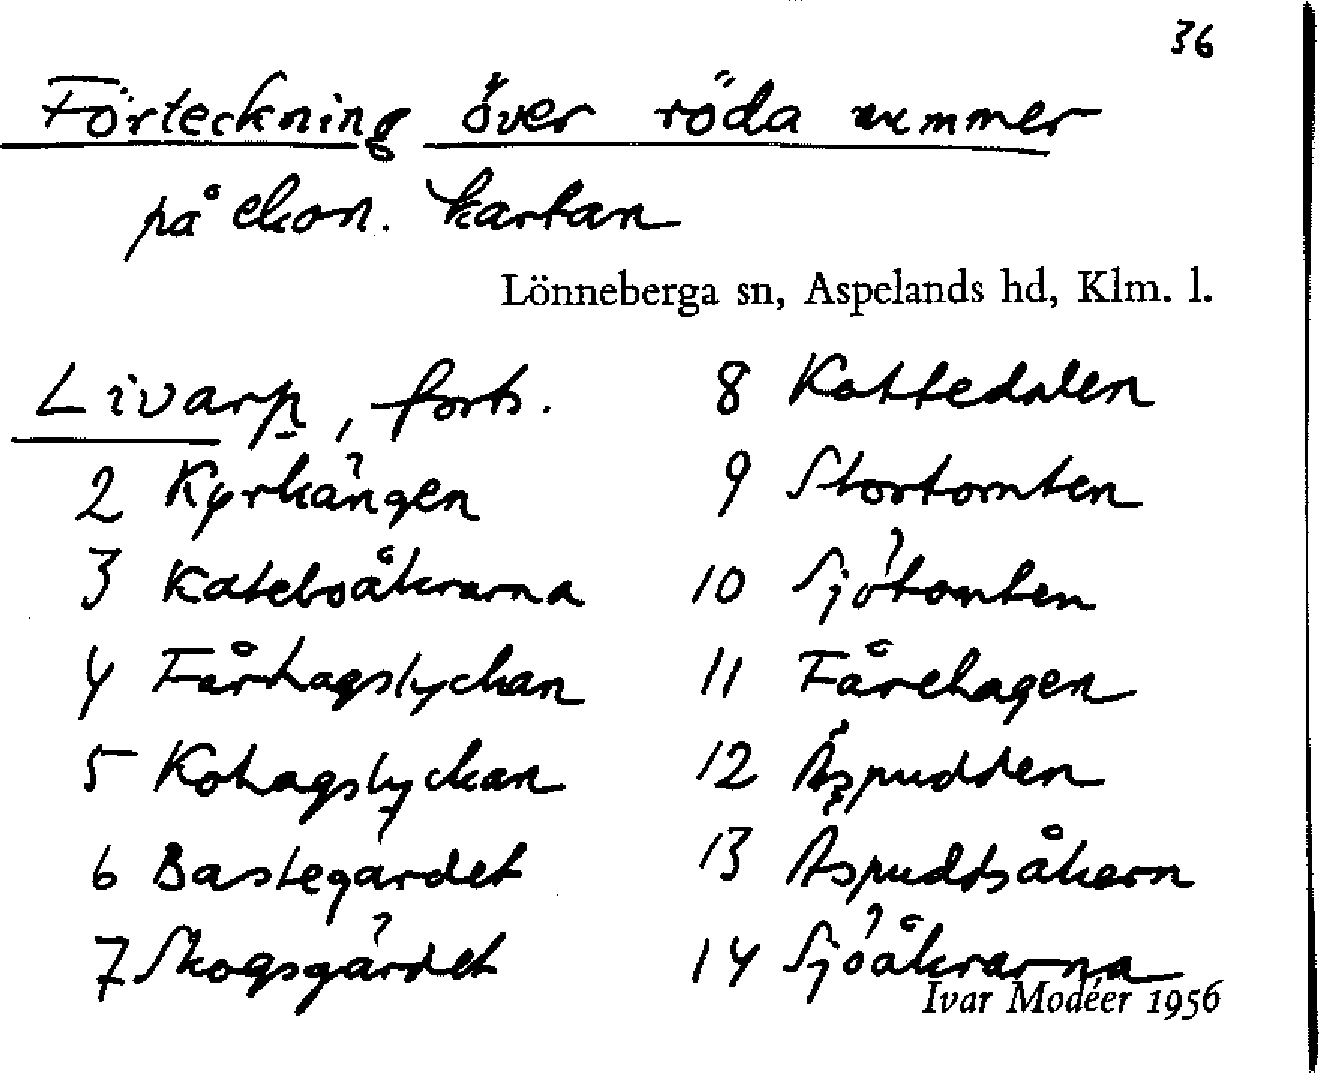 36
Förteckning över röda nummer
på ekon. kartan
Lönneberga sn, Aspelands hd, Klm. l.
Livarp, forts.
2 Kyrkängen
3 Kateboåkrarna
4 Fårhagslyckan
5 Kohagslyckan
6 Bastegärdet
7 Skogsgärdet
8 Kattedalen
9 Stortomten
10 Sjötomten
11 Fårehagen
12 Aspudden
13 Aspuddsåkern
14 Sjöåkrarna
Ivar Modéer 1956